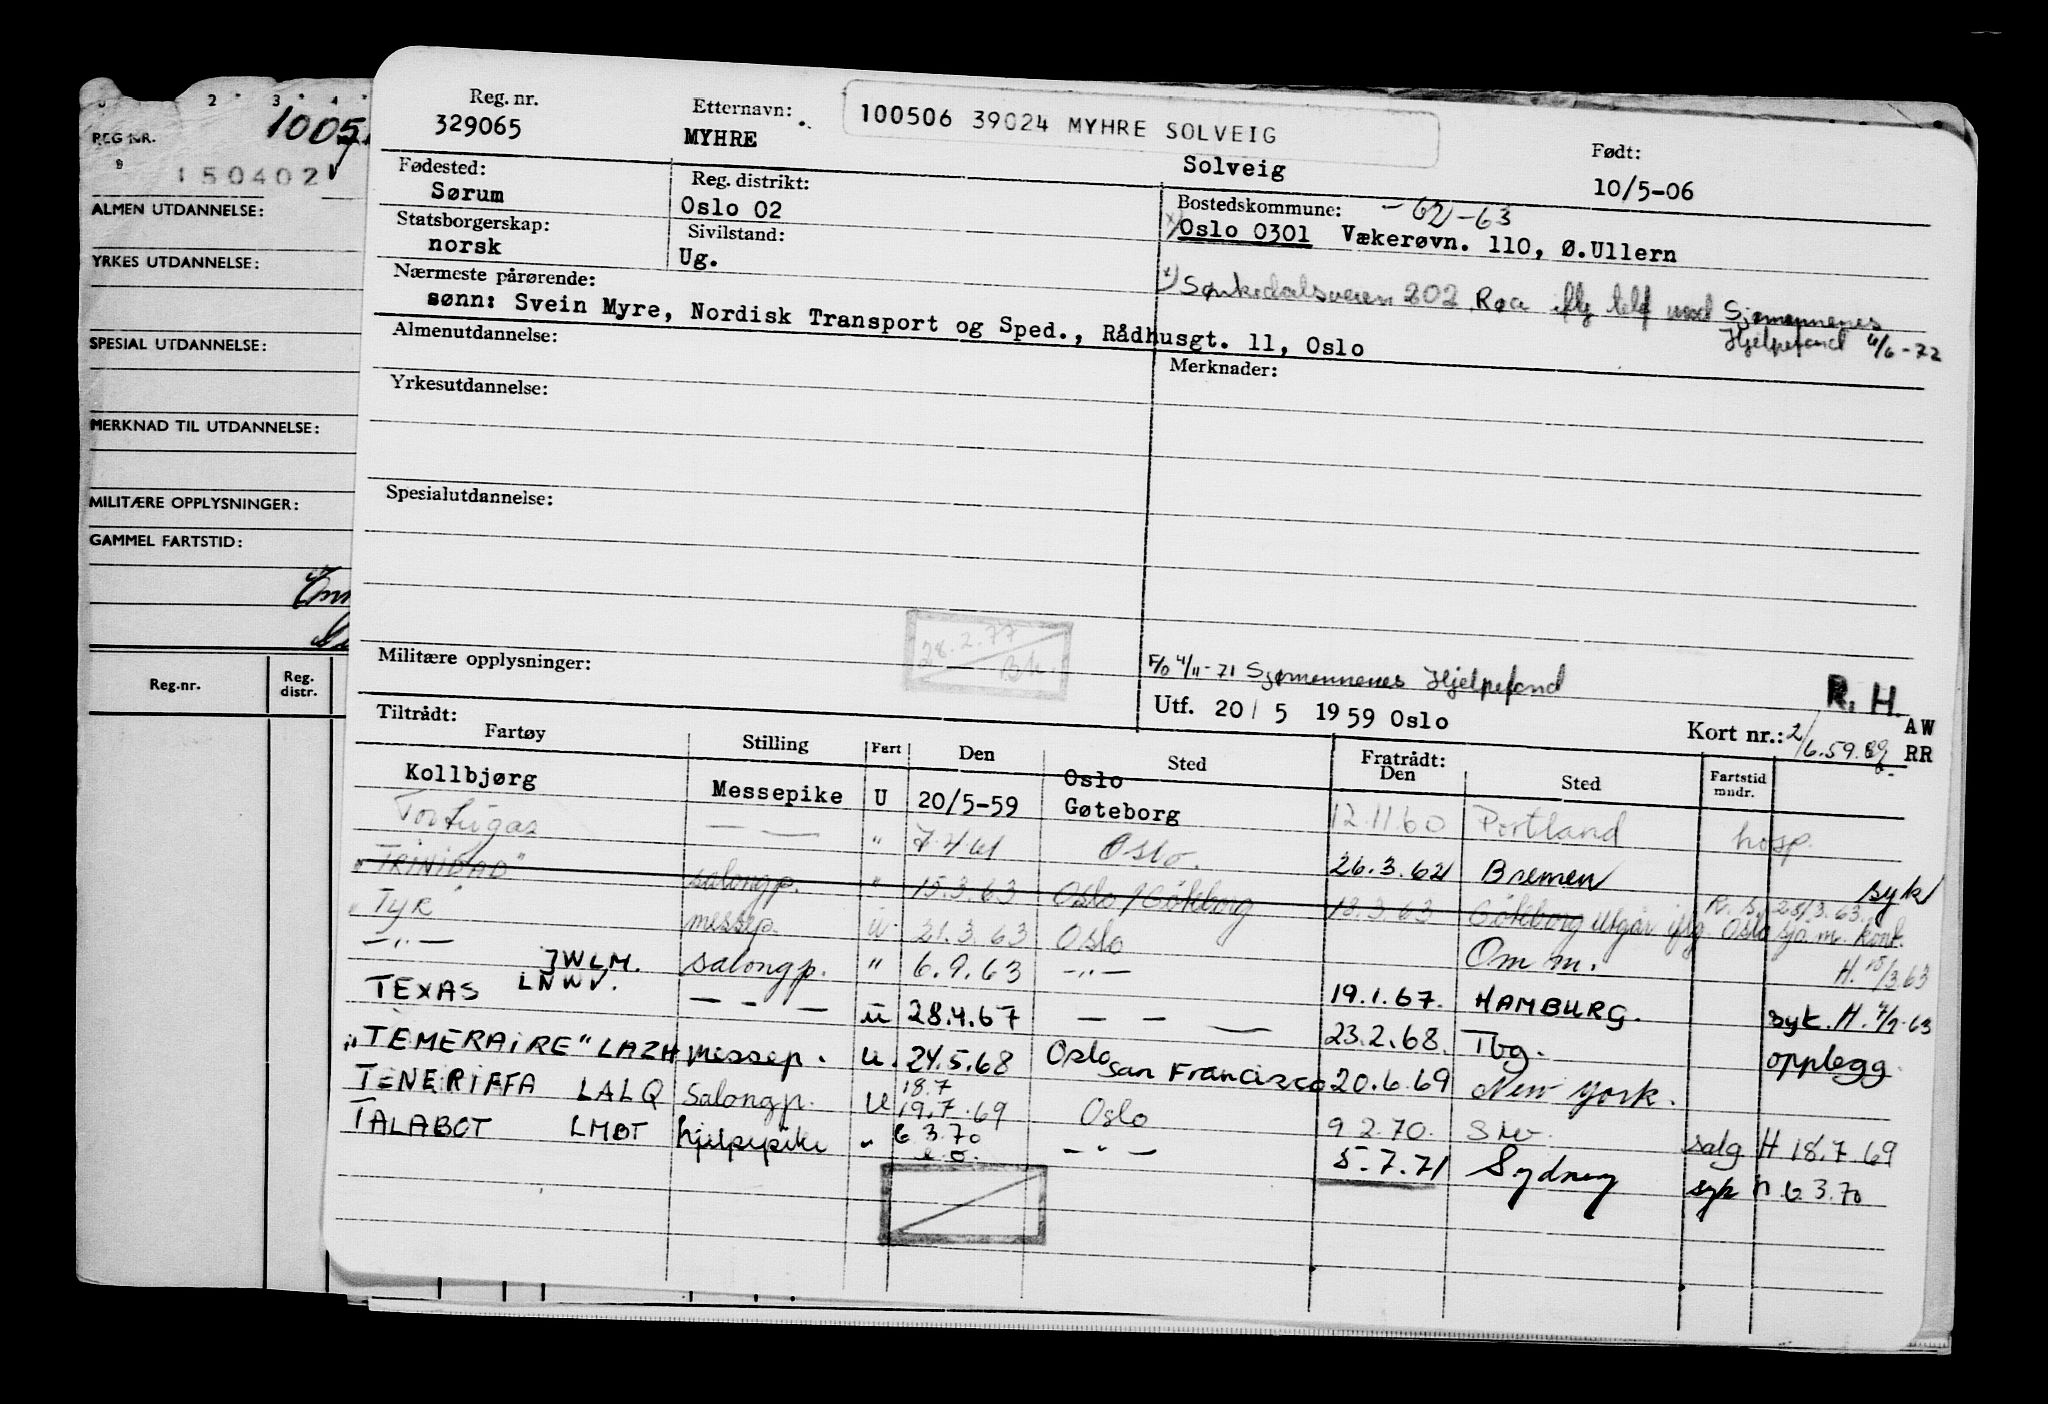 2 3 4
REG NR. 1005
150402
ALMEN UTDANNELSE:
YRKES UTDANNELSE:
SPESIAL UTDANNELSE:
MERKNAD TIL UTDANNELSE:
MILITÆRE OPPLYSNINGER:
GAMMEL FARTSTID:
Reg.nr. Reg. distr.
Reg. nr. Etternavn: 100506 39024 MYHRE SOLVEIG Født:
329065 MYHRE Solveig 10/5-06
Fødested: Reg. distrikt: Bostedskommune: -62-63
Sørum Oslo 02 Oslo 0301 Vækerøvn. 110, Ø.Ullern
Statsborgerskap: Sivilstand:
norsk Ug.
Sørkedalsveien 202 Røa iflg telf med Sjømennenes Hjelpefond 4/6-72
Nærmeste pårørende:
sønn: Svein Myre, Nordisk Transport og Sped., Rådhusgt. 11, Oslo
Almenutdannelse: Merknader:
Yrkesutdannelse:
Spesialutdannelse:
28.2.77
Militære opplysninger: F/O 4/11-71 Sjømennenes Hjelpefond
R. H.
Utf. 20/5 1959 Oslo Kort nr.: 2/6.59. AW RR
Tiltrådt: Fratrådt:
Fartøy Stilling Fart Den Sted Den Sted Fartstid mndr.
Kollbjørg Messepike U 20/5-59 Oslo Gøteborg 12.11.60 Portland hosp.
Tortugas — — " 7.4.61 Oslo. 26.3.62 Bremen syk
"TRINIDAD" salongp. " 15.3.63 Oslo/Göteborg 18.3.63 Göteborg Utgår iflg. Oslo sjø.m. kont.
"Tyr messep. u 21.3.63 Oslo H. 15/3.63
— " — salongp. " 6.9.63 — " — Om m. 19.1.67. HAMBURG. syk. H.
TEXAS JWLM. LNWV. — — — u 28.4.67 — — — 23.2.68. Tbg. opplegg.
"TEMERAIRE" LAZH messep. u. 24.5.68 Oslo San Francisco 20.6.69 New York.
TENERIFFA LALQ Salongp. u 18.7 19.7.69 Oslo 9.2.70. salg H 18.7.69
TALABOT LMBT hjelpepike " 6 3.70 — " — 5.7.71 Sydney syk H 6 3.70